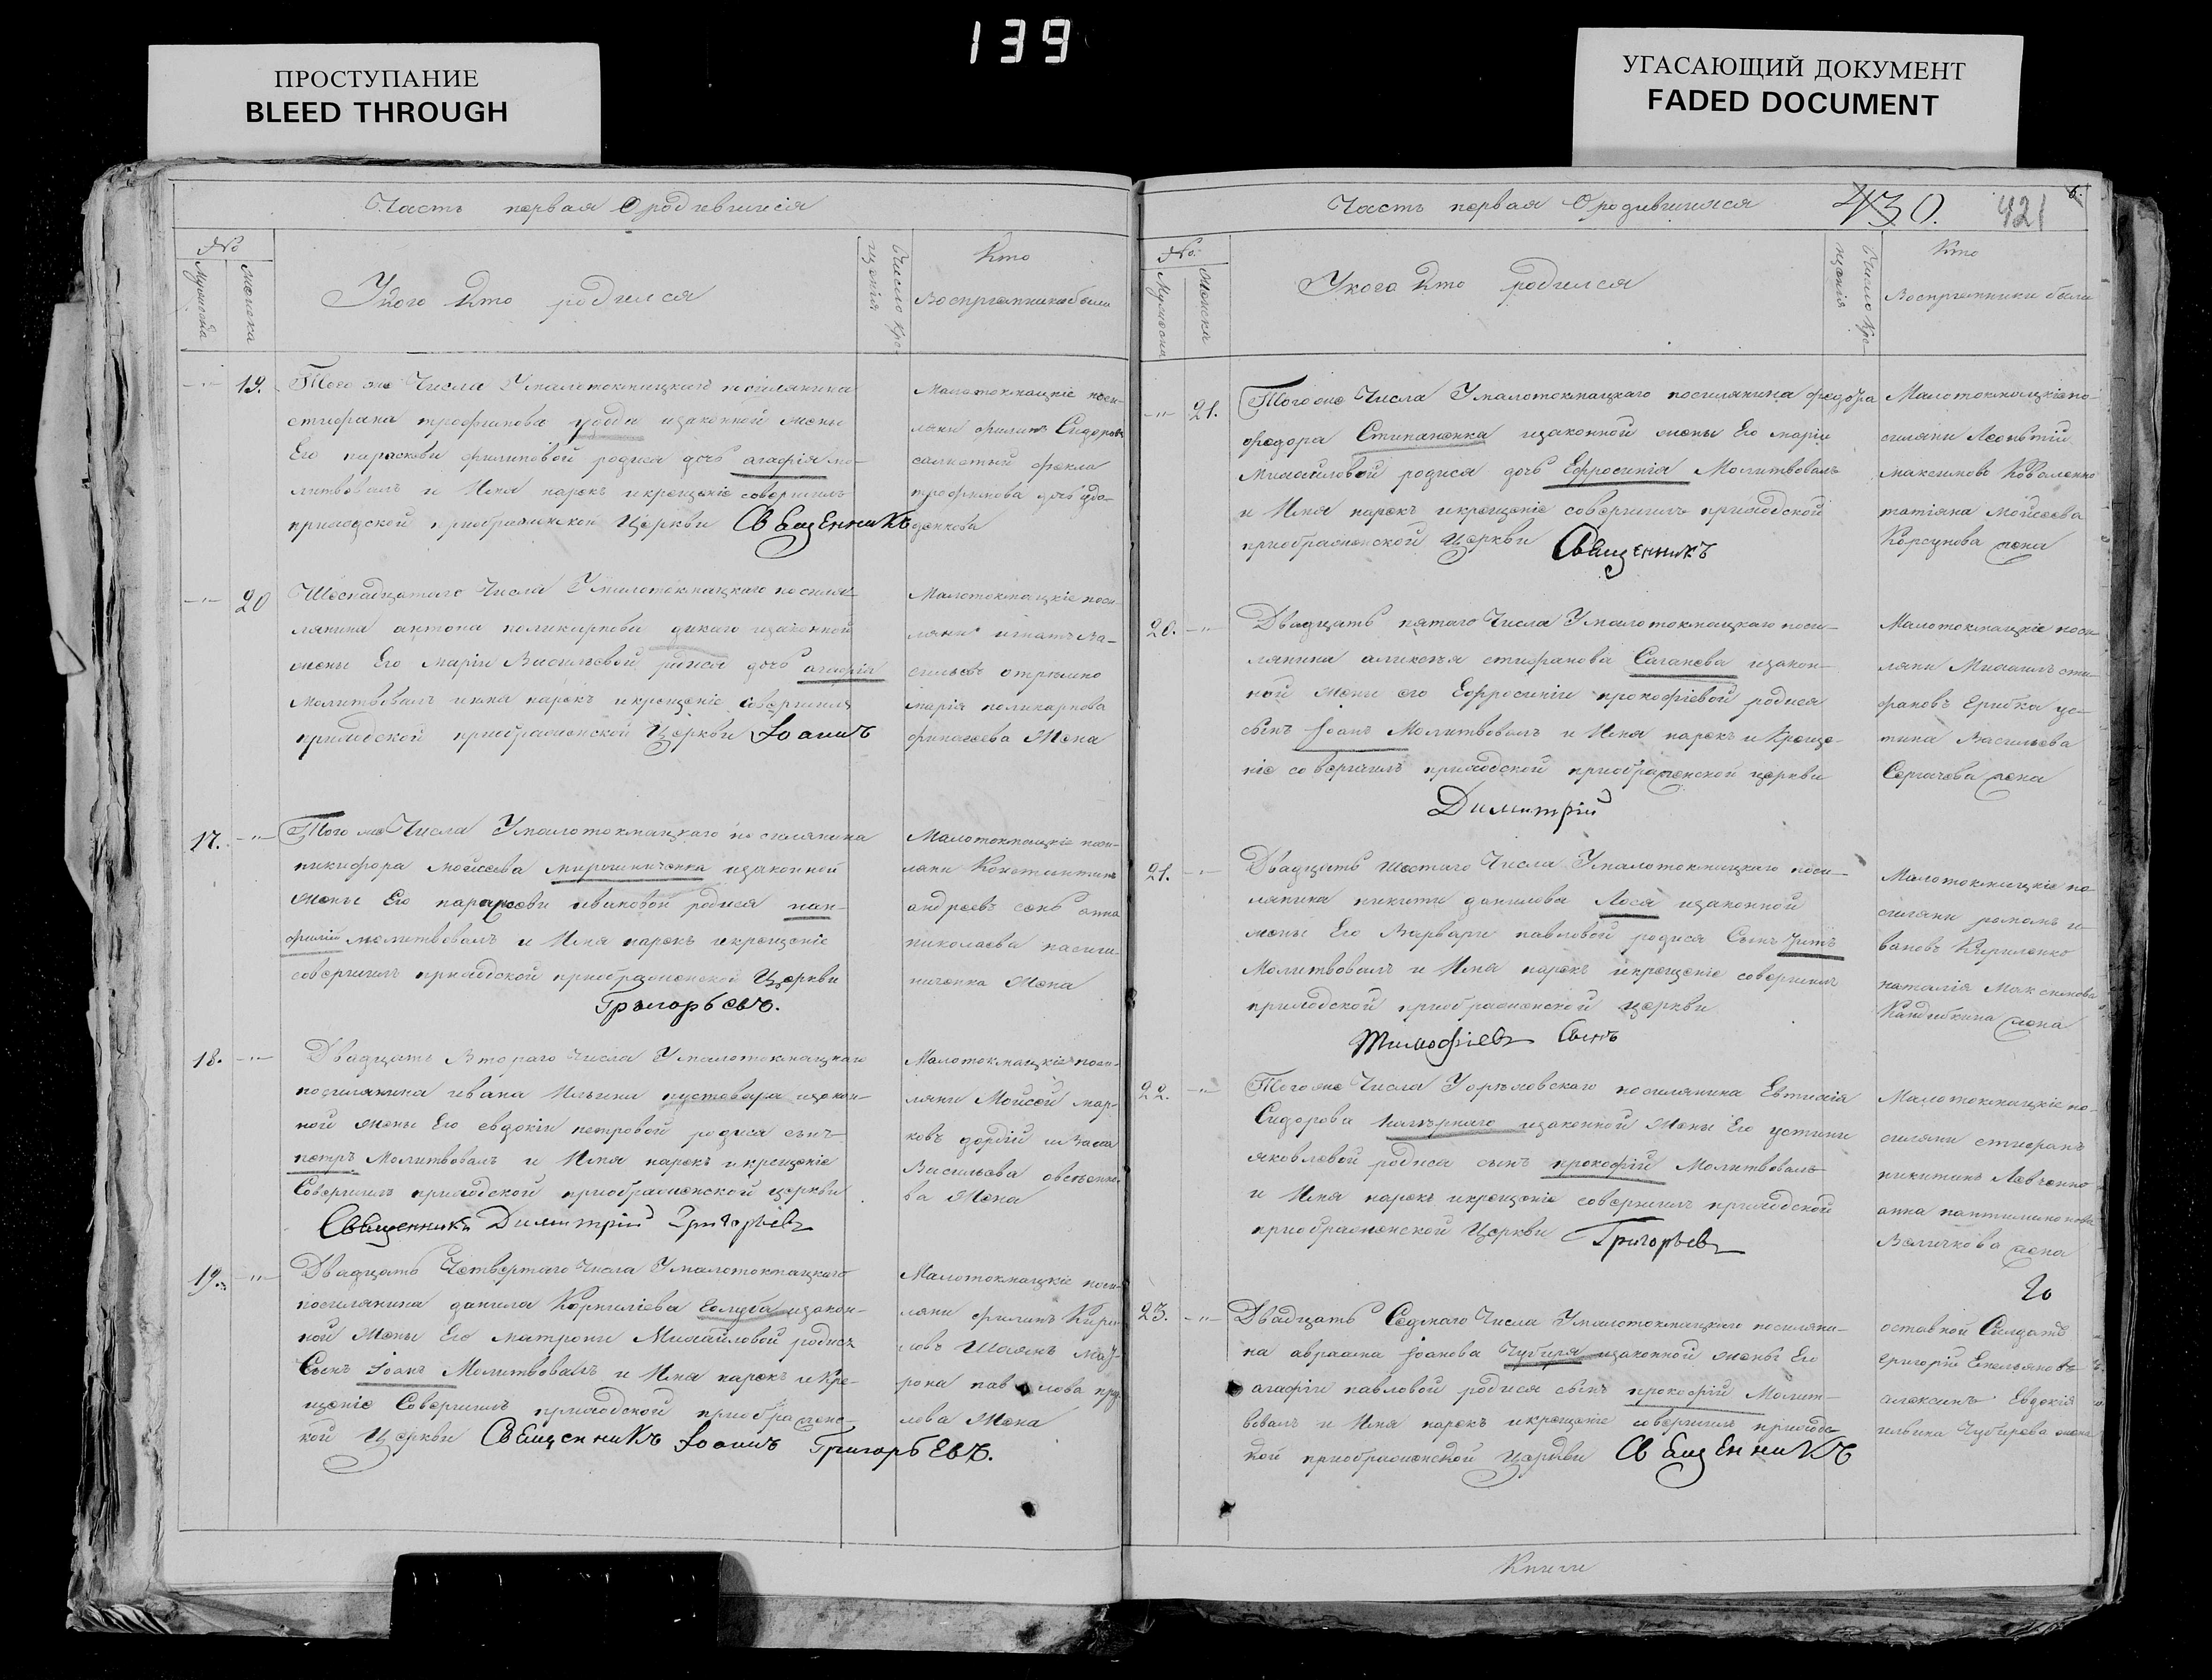 139
ПРОСТУПАНИЕ
BLEED THROUGH
УГАСАЮЩИЙ ДОКУМЕНТ
FADED DOCUMENT
Часть первая О родившихся
№
Мужеска
женска
У кого кто родился
Число кре-
щения
Кто
Воспрiемники были
19. Того же Числа У малотокмацкаго посилянина
стифана трофимова удода изаконной жены
Его параскови филиповой родися дочь агафiя мо-
литвовалъ и Имя нарекъ икрещенiе совершилъ
приходской приображенской Церкви СвЯщЕнникъ
Малотокмацкiе поси-
ляни филипъ Сидоровъ
фекла
трофимова дочь удо-
денкова
20 Шеснадцатаго Числа У малотокмацкаго посиля-
лянина антона поликарпова дикаго изаконной
жены Его марiи Васильевой родися дочь агафiя
Молитвовалъ имя нарекъ икрещенiе совершилъ
приходской приображенской Церкви Iоаннъ
Малотокмацкiе поси-
ляни игнатъ Ва-
сильевъ
марiя поликарпова
жена
17. Того же Числа У малотокмацкаго посилянина
никифора мойсеева мирошниченка изаконной
жены Его параскови ивановой родися пан-
филiй молитвовалъ и Имя нарекъ икрещенiе
совершилъ приходской приображенской Церкви
Григорьевъ.
Малотокмацкiе поси-
ляни Константинъ
андреевъ сенъ анна
николаева пасиш-
ниченка жена
18. Двадцать Втораго Числа У малотокмацкаго
посилянина ивана Ильина пустовара изакон-
ной жены Его евдокiи петровой родися сынъ
петръ Молитвовалъ и Имя нарекъ икрещенiе
Совершилъ приходской приображенской церкви
Священникъ Димитрiй Григорьевъ
Малотокмацкiе поси-
ляни Мойсей мар-
ковъ гордiй
Васильева овсъенко-
ва жена
19. Двадцать Четвертаго Числа У малотокмацкаго
посилянина данила Корнилiева Голуба изакон-
ной жены Его матроны Михайловой родися
Сынъ Iоанъ Молитвовалъ и Имя нарекъ икре-
щенiе Совершилъ приходской приображенс-
кой Церкви СвЯщенникъ Iоаннъ ГригорьЕвъ.
Малотокмацкiе поси-
ляни филипъ Кири-
ловъ маӱ-
рона павлова
лова жена
Часть первая О родившихся
430.
421
6.
№
Мужеска
женска
У кого кто родился
Число кре-
щенiя
Кто
Воспрiемники были
21. Того же Числа У малотокмацкаго посилянина федора
федора Стипаненка изаконной жены Его марiи
михайловой родися дочь Ефросинiя Молитвовалъ
и Имя нарекъ икрещенiе совершилъ приходской
приображенской Церкви Священникъ
Малотокмацкiе по-
силяни Леонътiй
максимовъ Коваленко
татiяна Мойсеева
Корсунова жена
20. Двадцать пятаго Числа У малотокмацкаго поси-
лянина аликсея стифанова Саганева изакон-
ной жены его Ефросинiи прокофiевой родися
сынъ Iоанъ Молитвовалъ и Имя нарекъ и Креще-
нiе совершилъ приходской приображенской церкви
Димитрiй
Малотокмацкiе поси-
ляни Михаилъ сти-
фановъ Грибка ус-
тина Васильева
Сергачева жена
21. Двадцать шестаго Числа У малотокмацкаго поси-
лянина никиты данилова Лося изаконной
жены Его Варвары павловой родися Сынъ
Молитвовалъ и Имя нарекъ икрещенiе совершилъ
приходской приображенской церкви
Тимофiевъ Сынъ
Малотокмацкiе по-
силяни романъ и-
вановъ Кириленко
наталiя Максимова
Кандибкина жена
22. Того же Числа У орѣховскаго посилянина Евтихiя
Сидорова изаконной жены Его устины
яковлевой родися сынъ прокофiй Молитвовалъ
и Имя нарекъ икрещенiе совершилъ приходской
приображенской Церкви Григорьевъ
Малотокмацкiе по-
силяни стифанъ
никитинъ Левченко
анна пантилимонова
Величкова жена
Го
23. Двадцать Седмаго Числа У малотокмацкаго посиляни-
на авраама Iоанова Чубиря изаконной жены Его
агафiи павловой родися сынъ прокофiй Молит-
вовалъ и Имя нарекъ икрещенiе совершилъ приходс-
кой приображенской Церкви СвЯщЕнникъ
оставной Солдатъ
григорiй Емельяновъ
алексинъ Евдокiя
ильина Чубирева жена
Книги